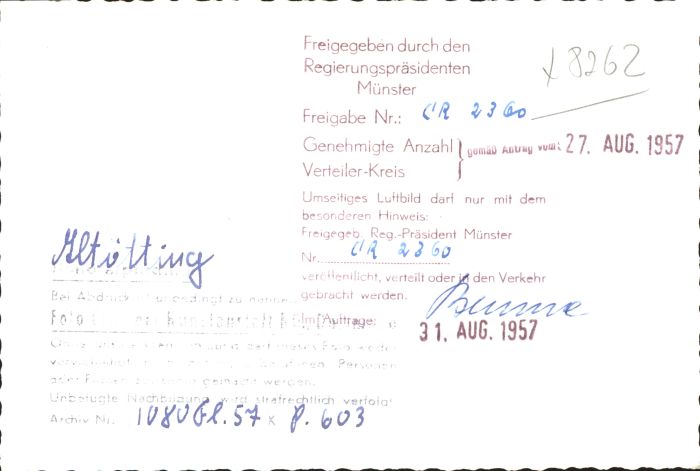 Freigegeben durch den
Regierungspräsidenten
Münster
x 8262
Freigabe Nr.: CR 2360
Genehmigte Anzahl
Verteiler-Kreis
gemäß Antrag vom: 27. AUG. 1957
Umseitiges Luftbild darf nur mit dem
besonderen Hinweis:
Freigegeb. Reg.-Präsident Münster
Nr. CR 2360
veröffentlicht, verteilt oder in den Verkehr
gebracht werden.
Im Auftrage:
31. AUG. 1957
Altötting
Bei Abdruck unbedingt zu nennen
Foto
dieses Foto weder
Personen
oder Firmen gemacht werden.
Unbefugte Nachbildung wird strafrechtlich verfolgt
Archiv Nr. 1080Gl.57 x P. 603